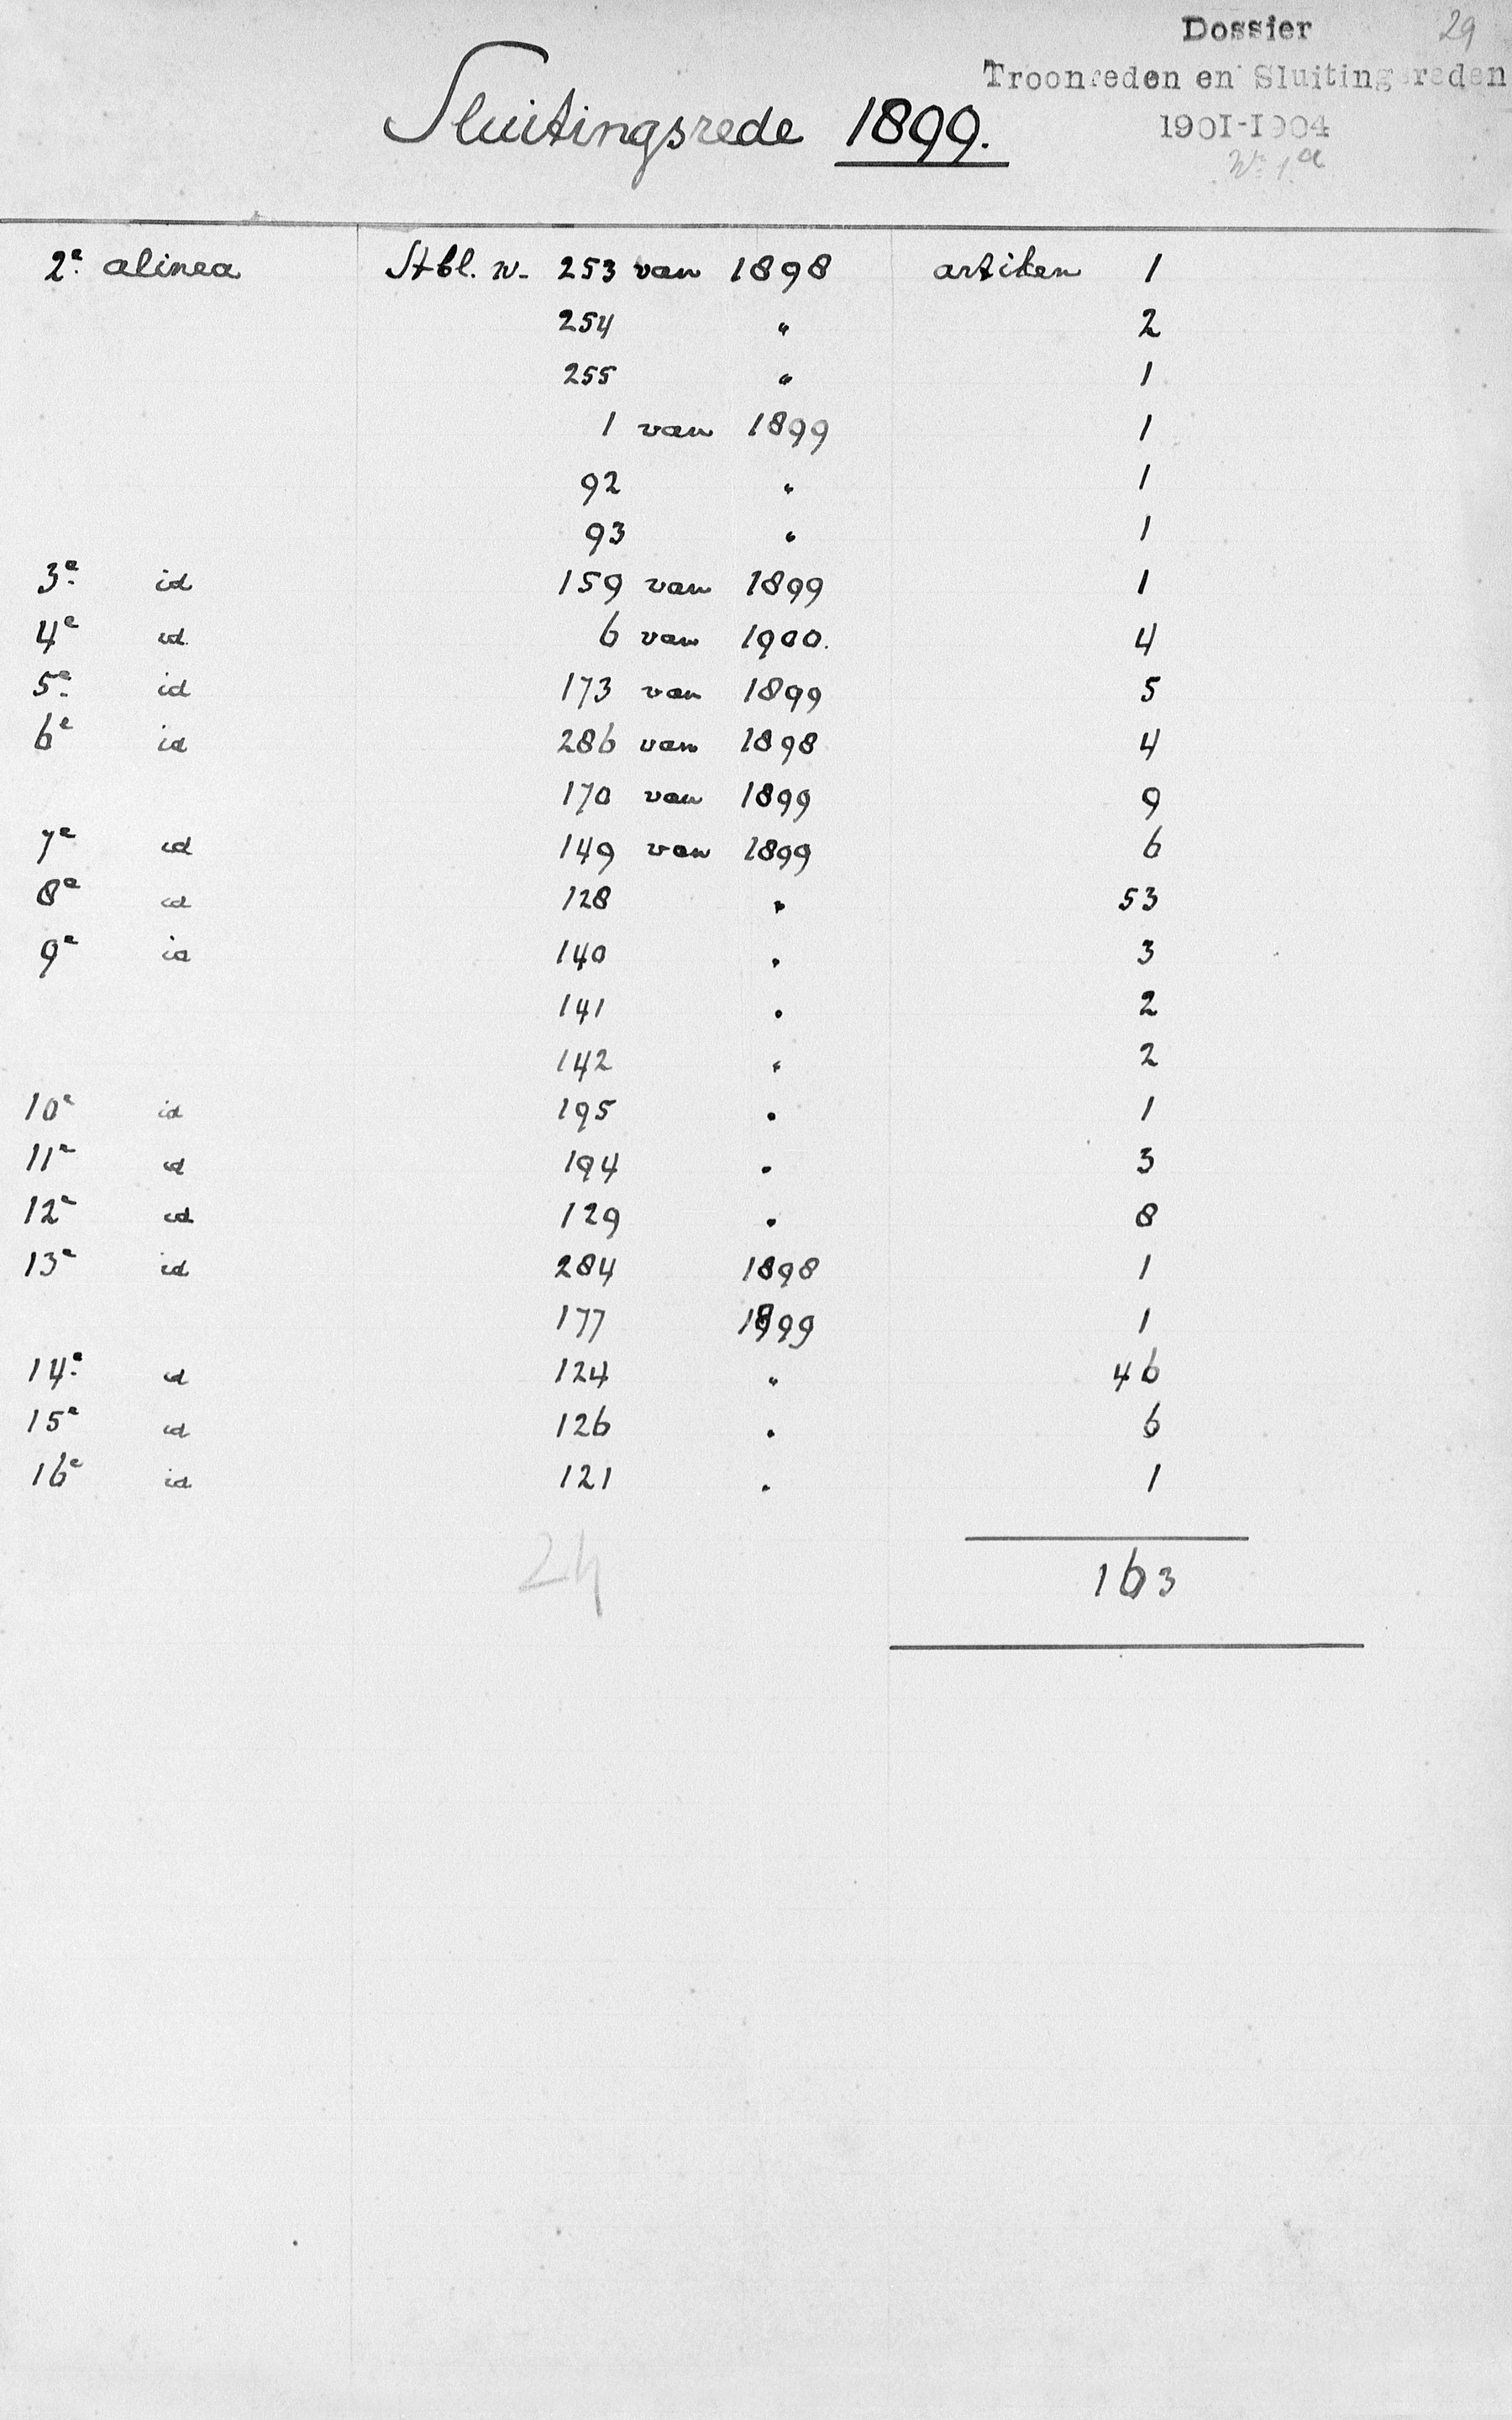 Dossier 29
Troonreden en Sluitingsreden
1901-1904
No 1a
Sluitingsrede 1899.
2e alinea Stbl. n. 253 van 1898 artiken 1
254 " 2
255 " 1
1 van 1899 1
92 " 1
93 " 1
3e id 159 van 1899 1
4e id 6 van 1900. 4
5e id 173 van 1899 5
6e id 286 van 1898 4
170 van 1899 9
7e id 149 van 1899 6
8e id 128 " 53
9e id 140 " 3
141 " 2
142 " 2
10e id 195 " 1
11e id 194 " 3
12e id 129 " 8
13e id 284 1898 1
177 1899 1
14e id 124 " 46
15e id 126 " 6
16e id 121 " 1
24
163